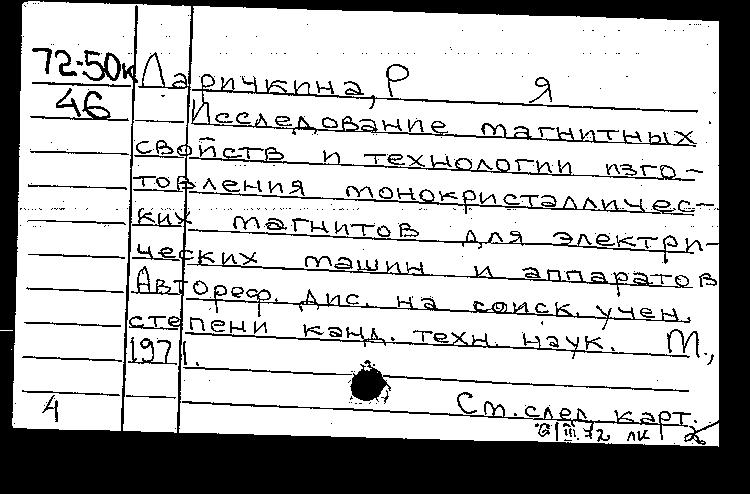 72-50к Ларичкина, Р Я
46 Исследование магнитных
свойств и технологии изго-
товления монокристалличес-
ких магнитов для электри-
ческих машин и аппаратов
Автореф. дис. на соиск. учен.
степени канд. техн. наук. М.,
1971.
См. след. карт.
4 III.72 лк